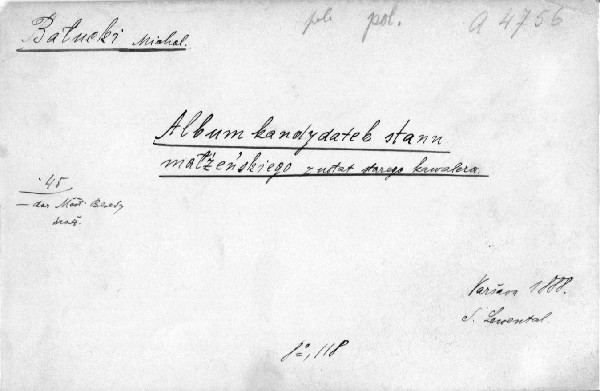 Bałucki Michal.
pol. A 4756
Album kandydatek stanu
małżeńskiego z notat starego kawalera.
45
- dar Měst.
Varšava 1888.
S. Lewental.
8°, 118